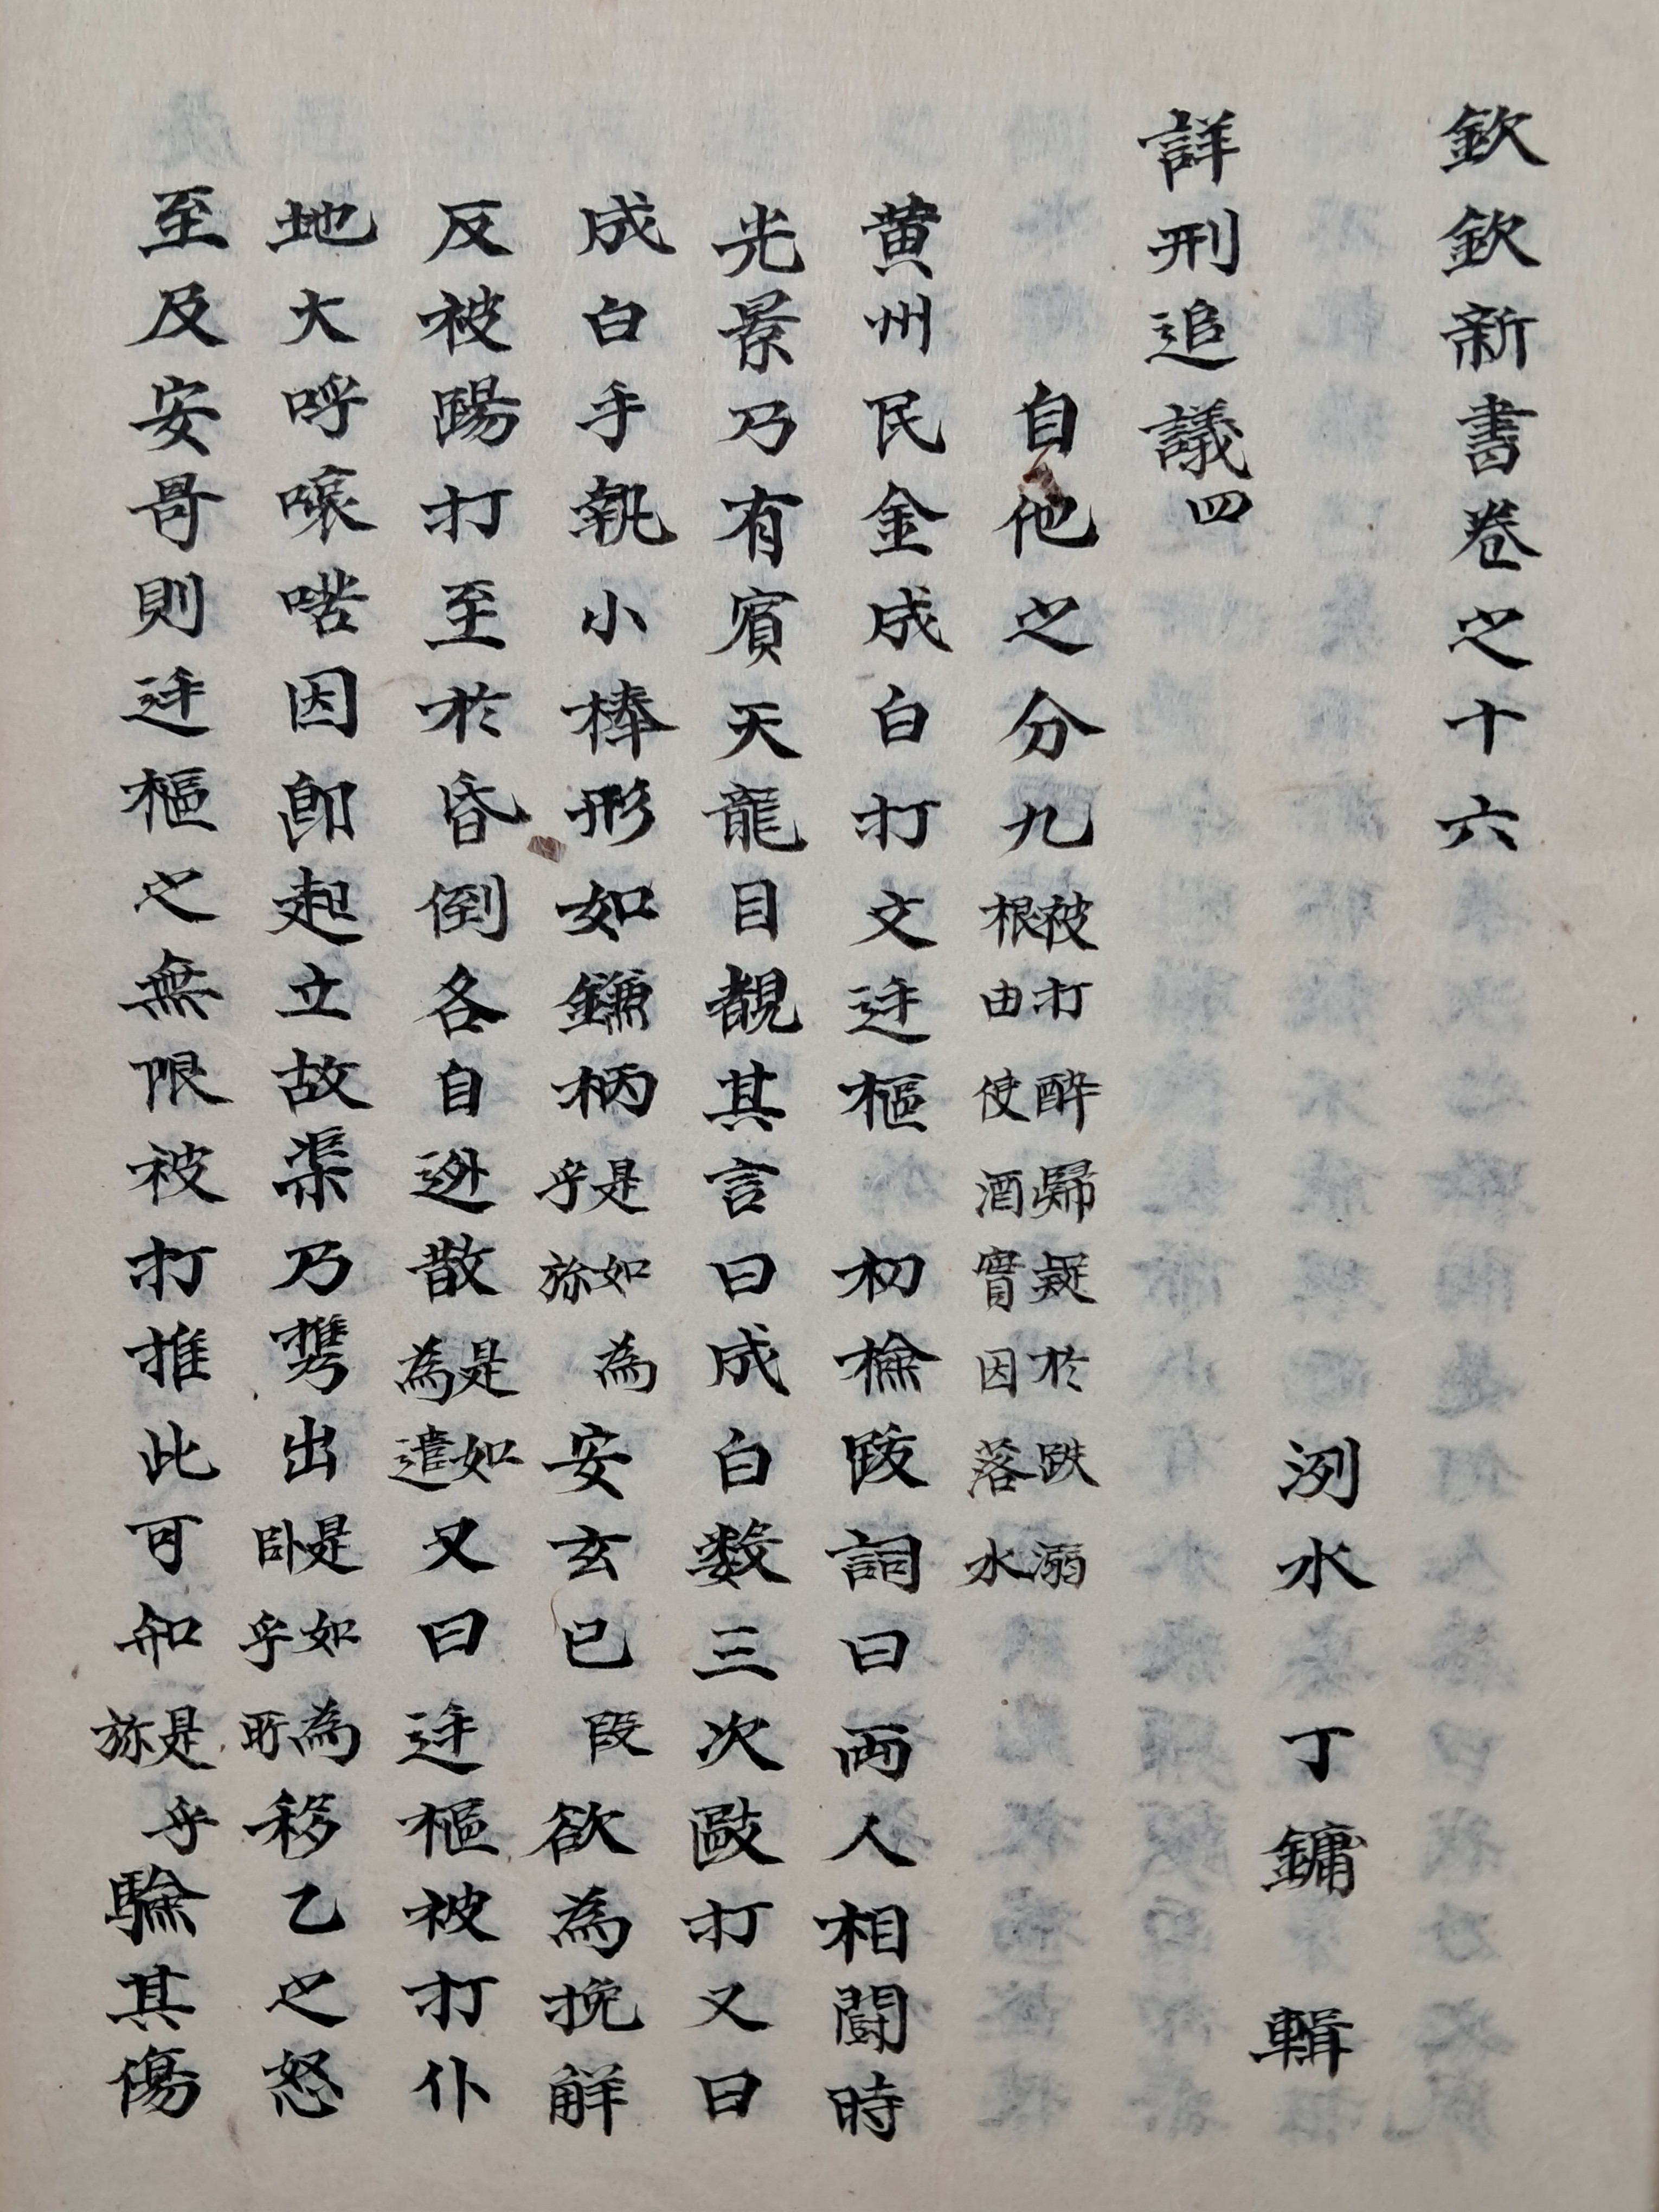 欽欽新書卷之十六
洌水 丁 鏞 輯
詳刑追議四
自他之分九 被打醉歸疑於跌溺
根由使酒實因落水
黄州民金成白打文迋樞 初檢跋詞曰両人相鬪時
光景乃有賓天龍目覩其言曰成白数三次敺打又曰
成白手執小棒形如鎌柄是如為乎旀安玄已段欲為挽解
反被踢打至於昏倒各自迯散是如為遣又曰迋樞被打仆
地大呼喏因即起立故渠乃携出是如為卧乎所移乙之怒
至及安哥則迋樞之無限被打推此可知是乎旀驗其傷